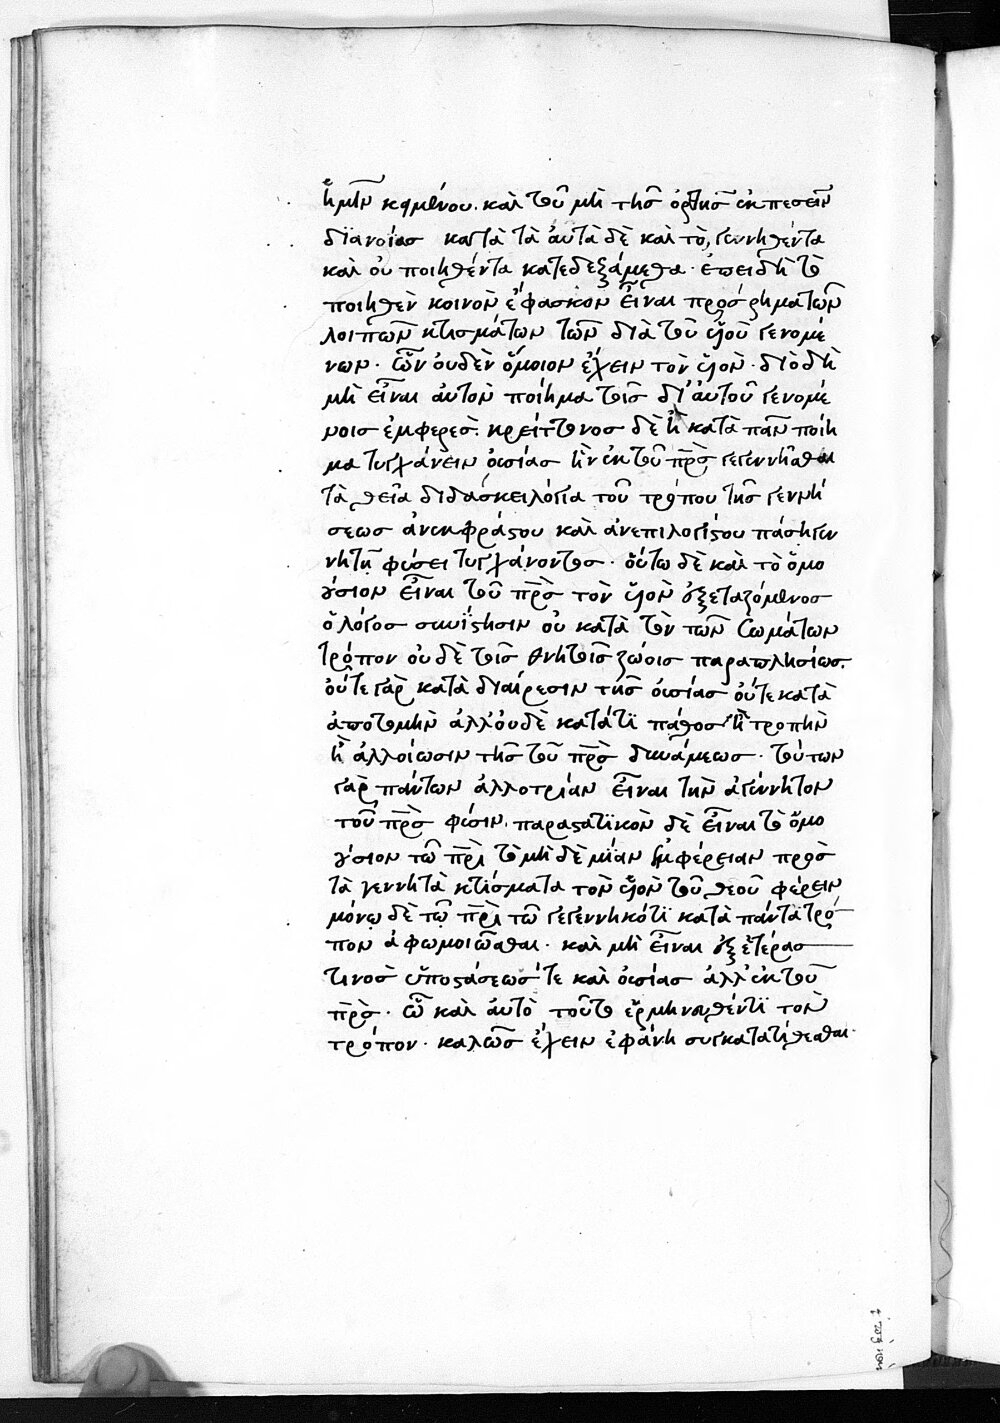 ἡμῖν κειμένου. καὶ τοῦ μὴ τῆς ὀρθῆς ἐκπεσεῖν
διανοίας κατὰ τὰ ἀυτὰ δὲ καὶ τὸ, γεννηθέντα
καὶ οὐ ποιηθέντα κατεδεξάμεθα· ἐπειδὴ τὸ
ποιηθὲν κοινὸν ἔφασκον εἶναι πρόσρημα τῶν
λοιπῶν κτισμάτων τῶν διὰ τοῦ υἱοῦ γενομέ
νων· ὧν ὀυδὲν ὅμοιον ἔχειν τὸν υἱὸν· διὸ δὴ
μὴ εἶναι ἀυτὸν ποίημα τοῖς δι' ἀυτοῦ γενομέ
νοις ἐμφερὲς. κρείττονος δὲ ἢ κατὰ πᾶν ποίη
μα τυγχάνειν ὀυσίας ἣν ἐκ τοῦ π̅ρ̅ς̅ γεγεννῆσθαι
τὰ θεῖα διδάσκει λόγια τοῦ τρόπου τῆς γεννή
σεως ἀνεκφράστου καὶ ἀνεπιλογίστου πάσῃ γεν
νητῇ φύσει τυγχάνοντος· ὅυτω δὲ καὶ τὸ ὅμο
ούσιον εἶναι τοῦ π̅ρ̅ς̅ τὸν υἱὸν ἐξεταζόμενος
ὁ λόγος συνίστησιν οὐ κατὰ τὸν τῶν σωμάτων
τρόπον οὐδὲ τοῖς θνητοῖς ζώοις παραπλησίως.
ὀύτε γὰρ κατὰ διαίρεσιν τῆς ὀυσίας ὀύτε κατὰ
ἀποτομὴν ἀλλ' ὀυδὲ κατά τι πάθος ἢ τροπὴν
ἢ ἀλλοίωσιν τῆς τοῦ π̅ρ̅ς̅ δυνάμεως· τούτων
γὰρ πάντων ἀλλοτρίαν εἶναι τὴν ἀγέννητον
τοῦ π̅ρ̅ς̅ φύσιν. παραστατικὸν δὲ εἶναι τὸ ὅμο
ούσιον τῷ π̅ρ̅ι̅ τὸ μὴ δὲ μίαν ἐμφέρειαν πρὸς
τὰ γεννητὰ κτίσματα τὸν υἱὸν τοῦ θεοῦ φέρειν
μόνῳ δὲ τῷ π̅ρ̅ι̅ τῷ γεγεννηκότι κατὰ πάντα τρό
πον ἀφωμοιῶσθαι· καὶ μὴ εἶναι ἐξ ἑτέρας
τινὸς ὑποστάσεως τε καὶ ὀυσίας ἀλλ' ἐκ τοῦ
π̅ρ̅ς̅· ᾧ καὶ ἀυτὸ τοῦτο ἑρμηνευθέντι τὸν
τρόπον· καλῶς ἔχειν ἐφάνη συγκατατίθεσθαι·